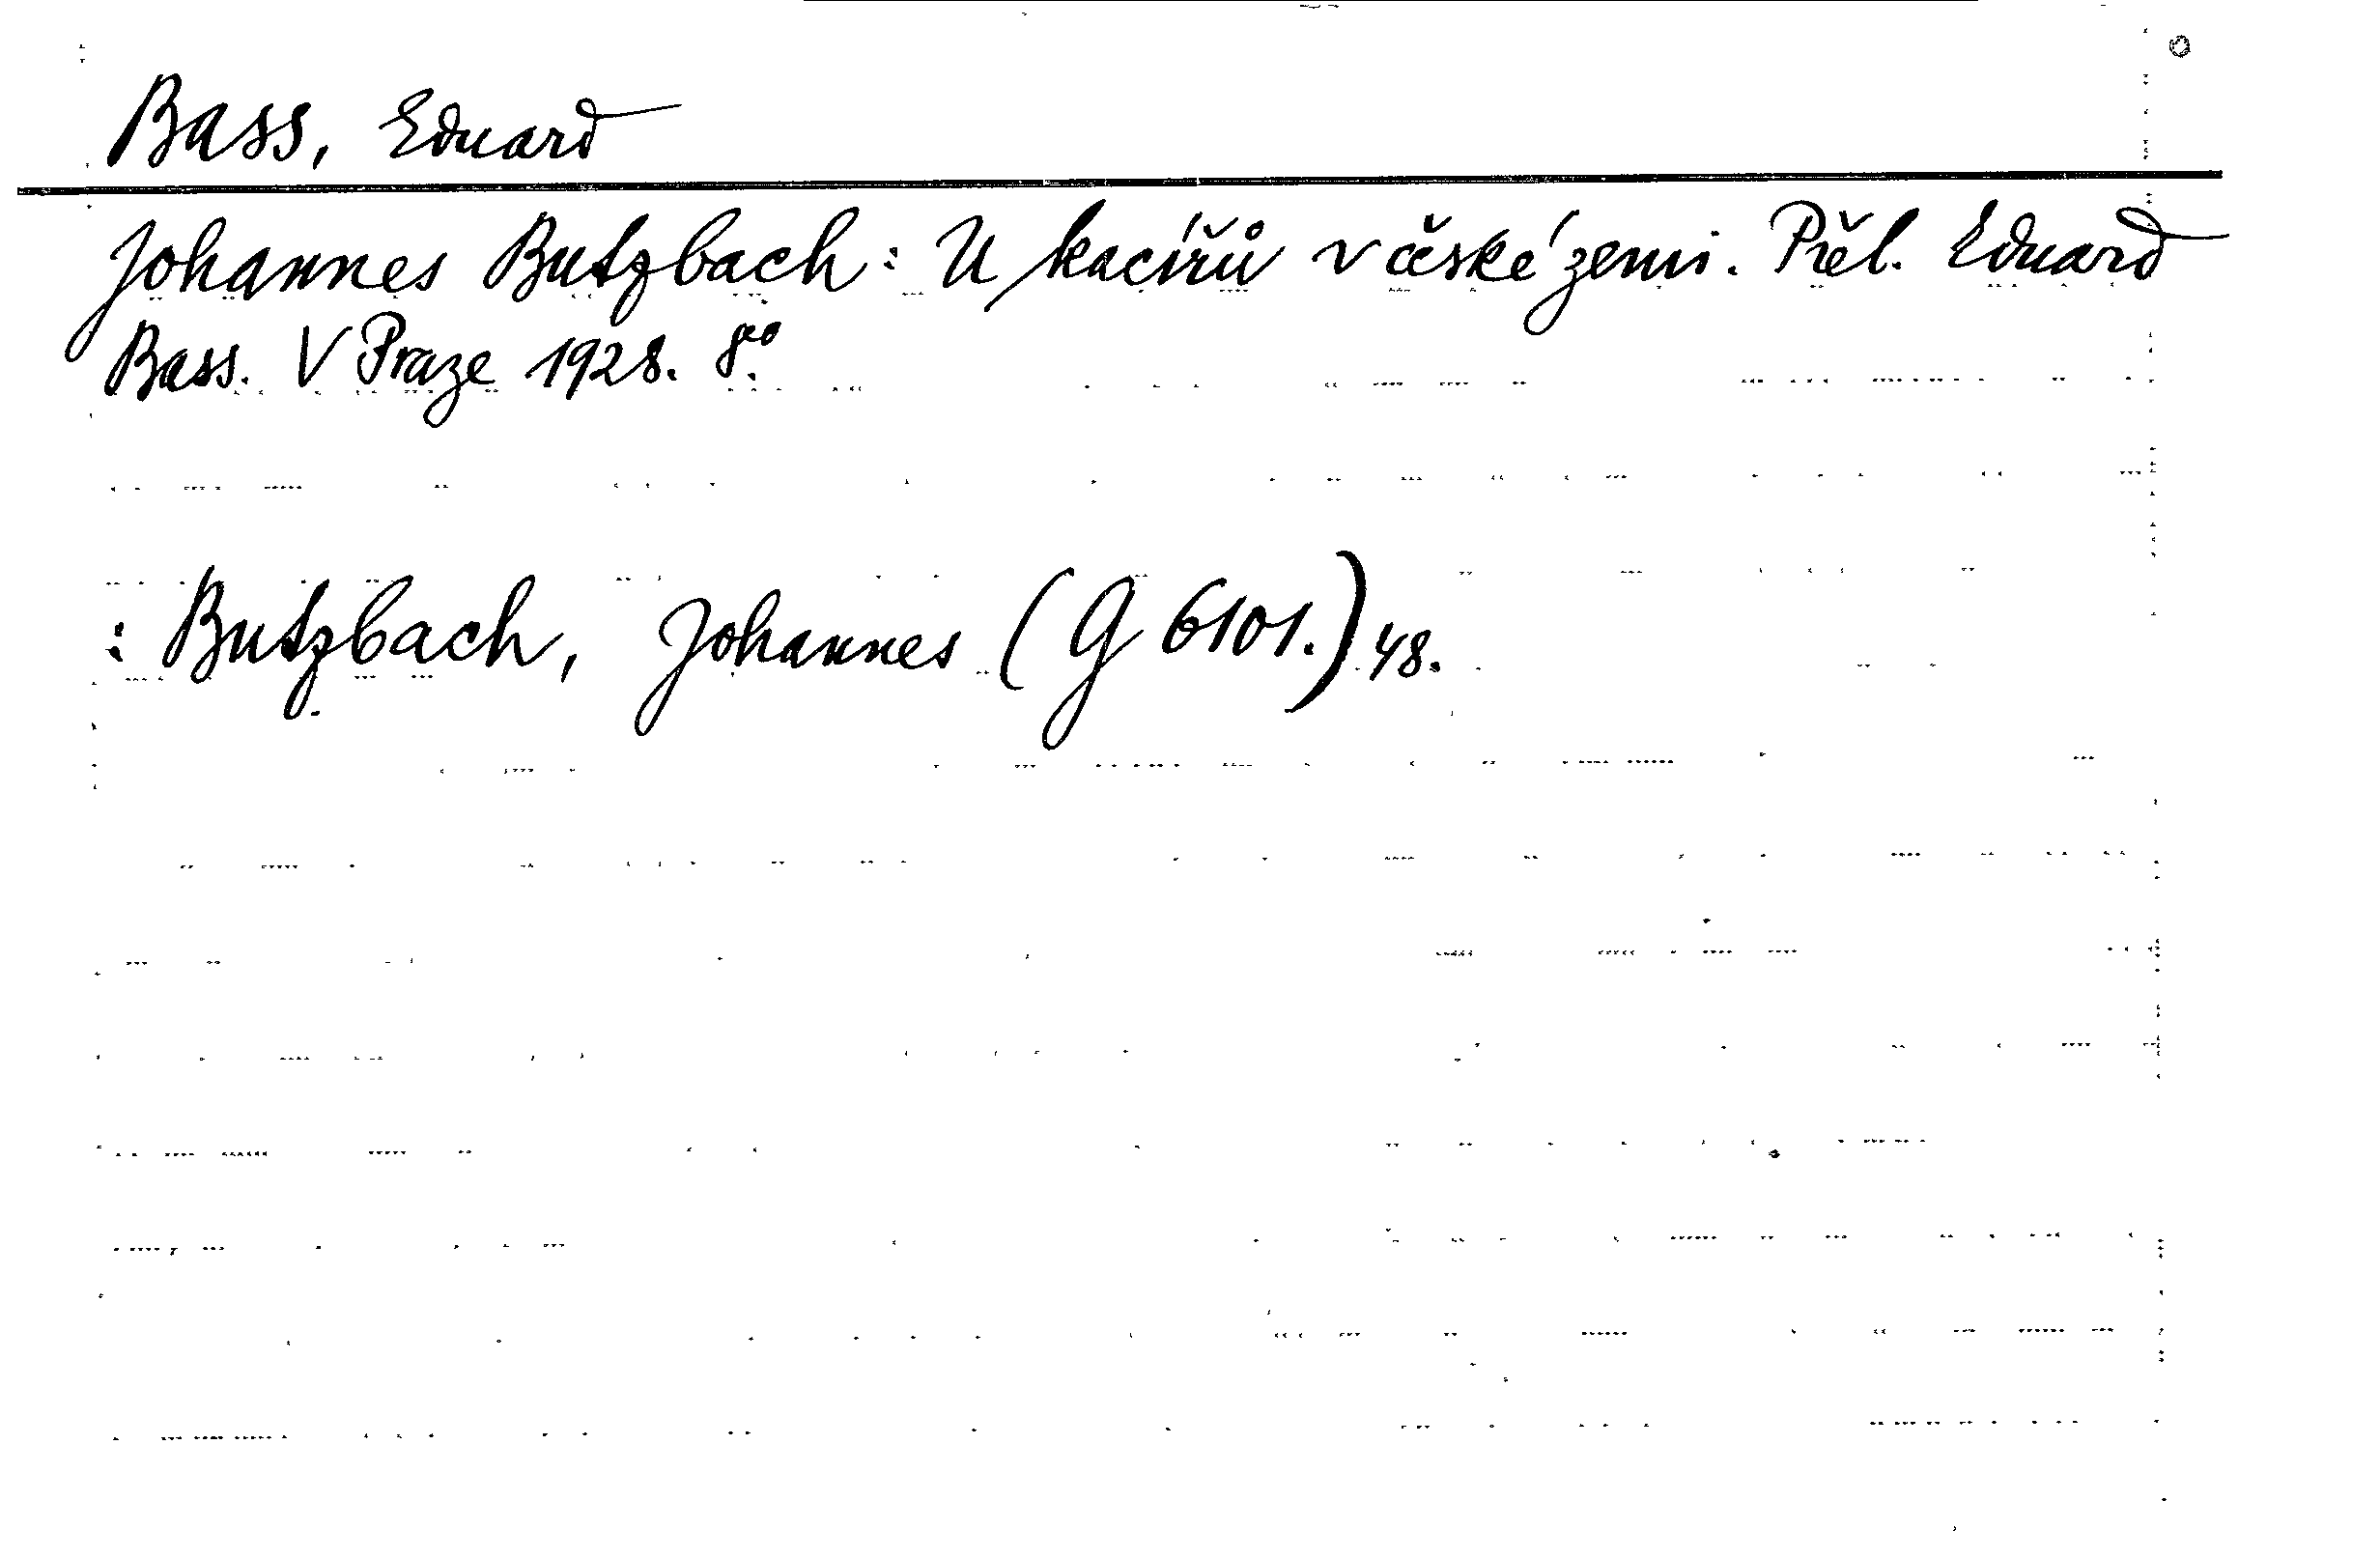 Bass, Eduard
Johannes Butzbach: U kacířů v české zemi. Přel. Eduard
Bass. V Praze 1928. 8°.
: Butzbach, Johannes (G 6101.) 48.